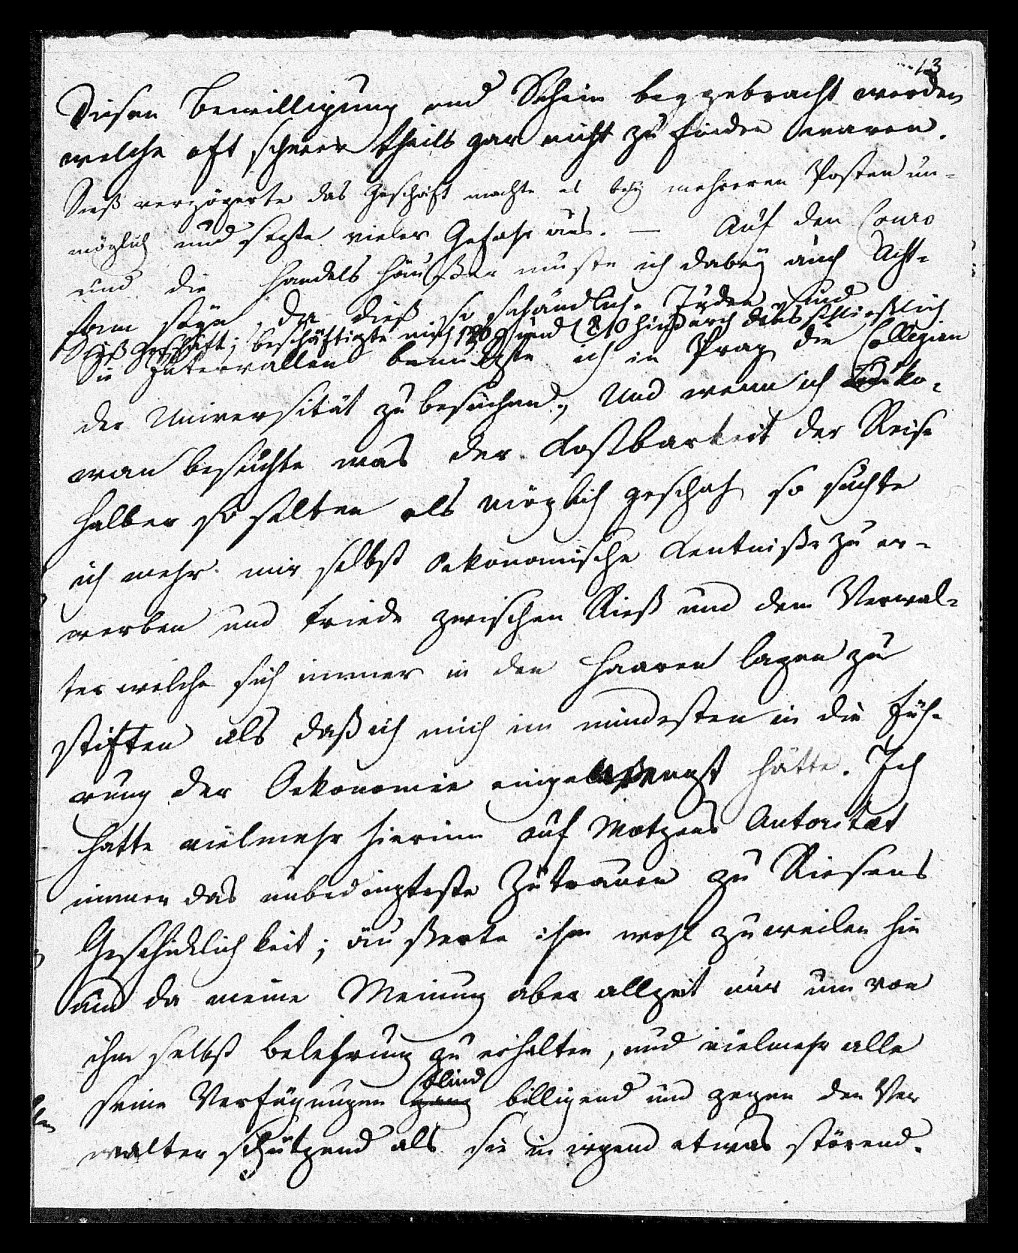 13
diesen Bewilligung und Schein beygebracht werden
welche oft schwer theils gar nicht zu finden waren.
Dieß verzögerte das Geschäft machte es bey mehreren Posten un-
möglich und setzte vieler Gefahr aus. — Auf den Cours
und die Handels Häußer muste ich dabey auch Acht-
sam seyn, da dieß so schändliche Juden sind
Dieß Geschäft; beschäftigte mich 1809 und 1810 hindurch ausschließlich
in Intervallen bemühte ich in Prag die Collegien
der Universität zu besuchen, Und wenn ich Buko-
wan besuchte was der Kostbarkeit der Reise
halber so selten als möglich geschah so suchte
ich mehr mir selbst oekonomische Kentniße zu er-
werben und Friede zwischen Rieß und dem Verwal-
ter welche sich immer in den Haaren lagen zu
stiften als daß ich mich im mindesten in die Füh-
rung der Oekonomie hätte. Ich
hatte vielmehr hierinn auf Motzens Autoritæt
immer das unbedingteste Zutrauen zu Riesens
Geschicklichkeit; äußerte ihm wohl zuweilen hie
und da meine Meinung aber allzeit nur um von
ihm selbst Belehrung zu erhalten, und vielmehr alle
blind
seine Verfügungen ganz billigend und gegen den Ver
walter schützend als sie in irgend etwas störend.